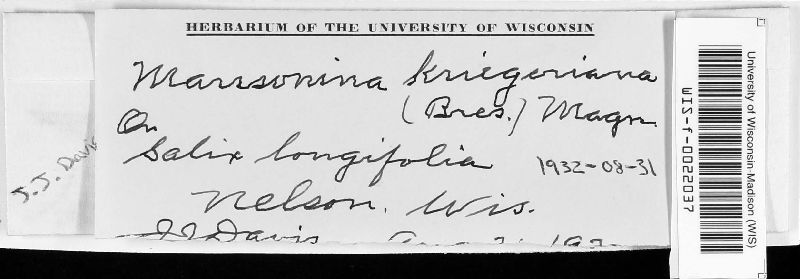 HERBARIUM OF THE UNIVERSITY OF WISCONSIN
Marssonina kriegeriana
(Bres.) Magn.
On
Salix longifolia
1932-08-31
Nelson. Wis.
JJ Davis
J.J. Davis
University of Wisconsin-Madison (WIS)
WIS-f-0022037